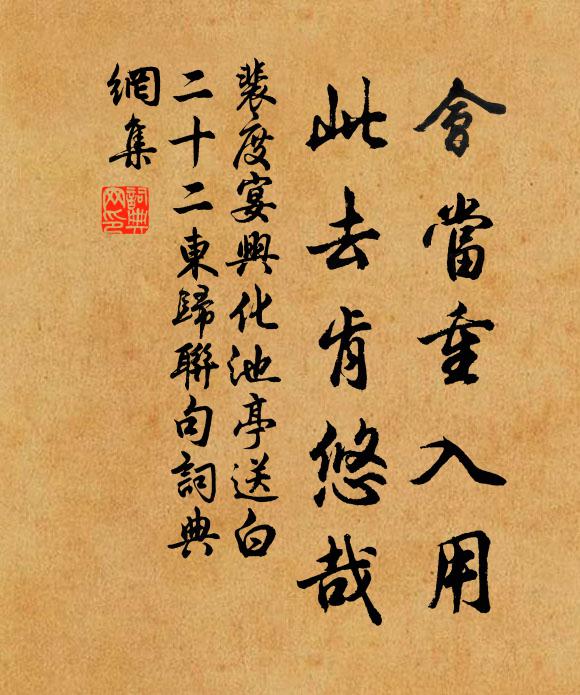 會當重入用
此去肯悠哉
裴度宴興化池亭送白
二十二東歸聯句詞典
網集
詞典
网印